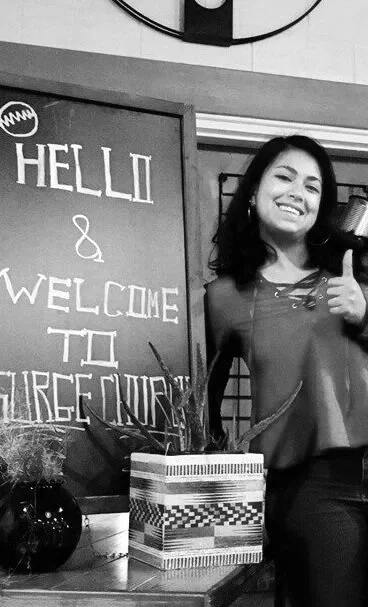 HELLO
&
WELCOME
TO
SURGE CHURCH